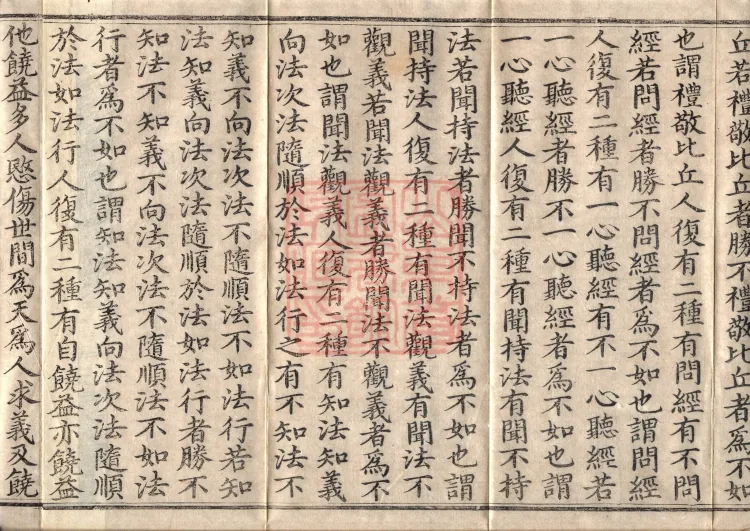 丘若禮敬比丘者勝不禮敬比丘者爲不如
也謂禮敬比丘人復有二種有問經有不問
經若問經者勝不問經者爲不如也謂問經
人復有二種有一心聽經有不一心聽經若
一心聽經者勝不一心聽經者爲不如也謂
一心聽經人復有二種有聞持法有聞不持
法若聞持法者勝聞不持法者爲不如也謂
聞持法人復有二種有聞法觀義有聞法不
觀義若聞法觀義者勝聞法不觀義者爲不
如也謂聞法觀義人復有二種有知法知義
向法次法隨順於法如法行之有不知法不
知義不向法次法不隨順法不如法行若知
法知義向法次法隨順於法如法行者勝不
知法不知義不向法次法不隨順法不如法
行者爲不如也謂知法知義向法次法隨順
於法如法行人復有二種有自饒益亦饒益
他饒益多人愍傷世間爲天爲人求義及饒